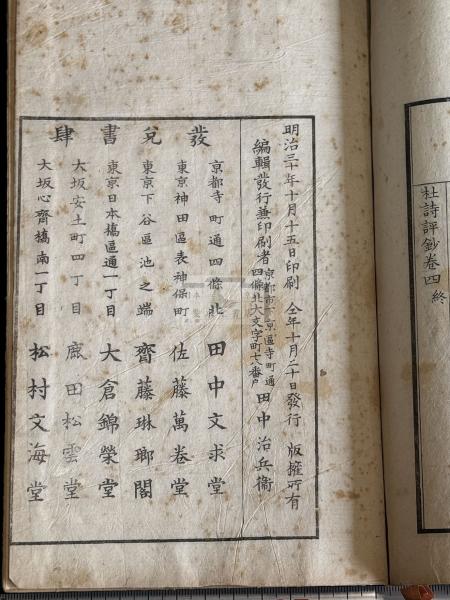 杜詩評鈔卷四 終
明治三十年十月十五日印刷 仝年十月二十日發行 版擁所有
編輯發行兼印刷者 京都市下京區寺町通四條北大文字町十八番戶 田中治兵衞
發兌書肆
京都寺町通四條北 田中文求堂
東京神田區表神保町 佐藤萬卷堂
東京下谷區池之端 齋藤琳瑯閣
東京日本橋區通一丁目 大倉錦榮堂
大坂安土町四丁目 鹿田松雲堂
大坂心齋橋南一丁目 松村文海堂